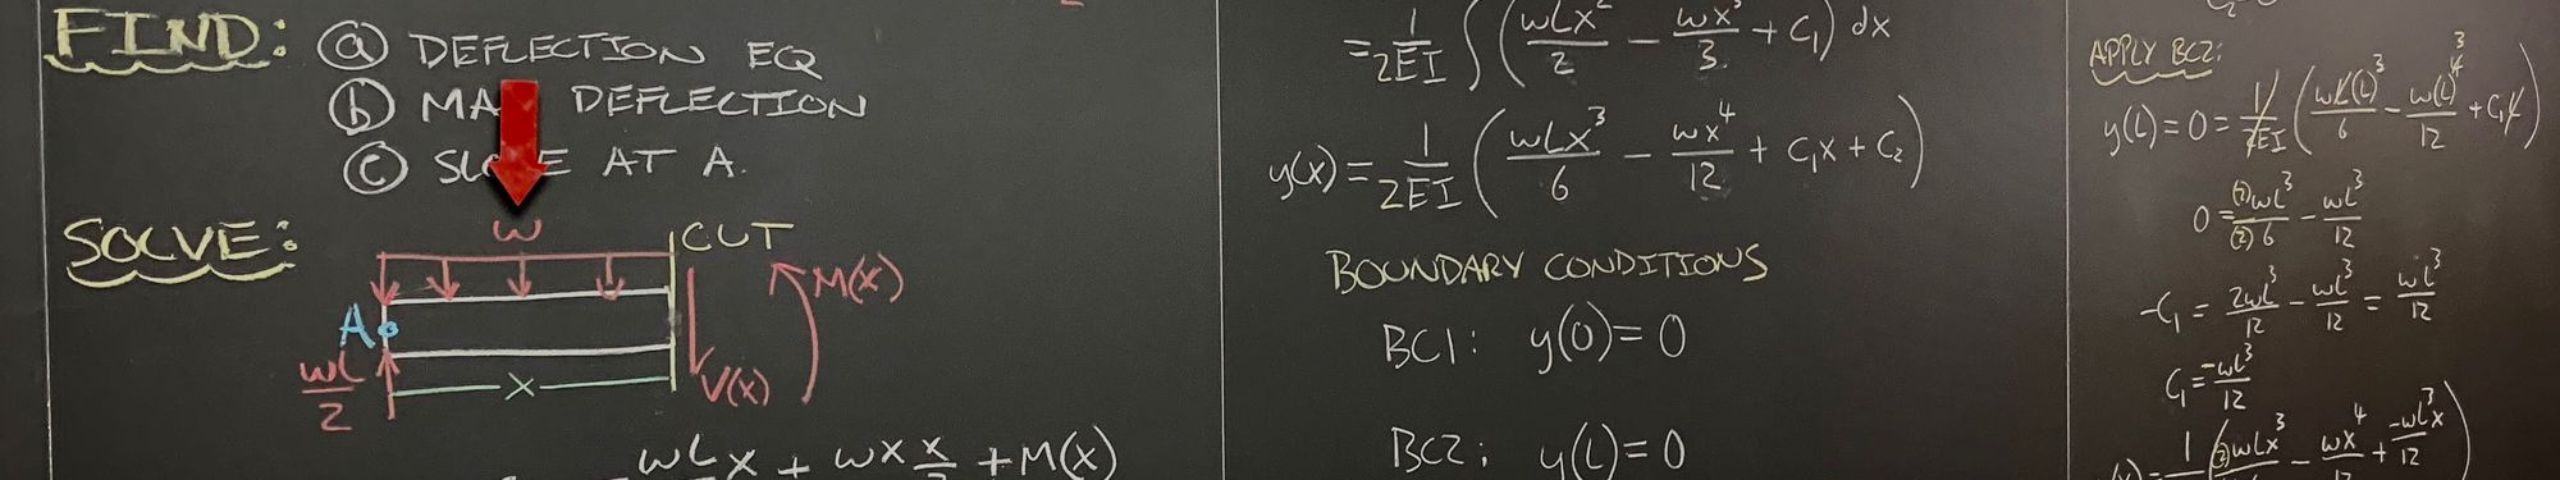 FIND: ⓐ DEFLECTION EQ
ⓑ MA DEFLECTION
ⓒ SL E AT A.
SOLVE:
w
CUT
M(x)
A
wL/2
x
V(x)
wL x + wx x + M(x)
= 1/2EI ∫ (wLx²/2 - wx³/3 + C₁) dx
y(x) = 1/2EI (wLx³/6 - wx⁴/12 + C₁x + C₂)
BOUNDARY CONDITIONS
BC1: y(0) = 0
BC2: y(L) = 0
APPLY BC2:
y(L) = 0 = 1/2EI (wL(L)³/6 - w(L)⁴ ³/12 + C₁L)
0 = (2)wL³/(2)6 - wL³/12
-C₁ = 2wL³/12 - wL³/12 = wL³/12
C₁ = -wL³/12
1 (2)wLx³ - wx⁴ + -wL³x/12